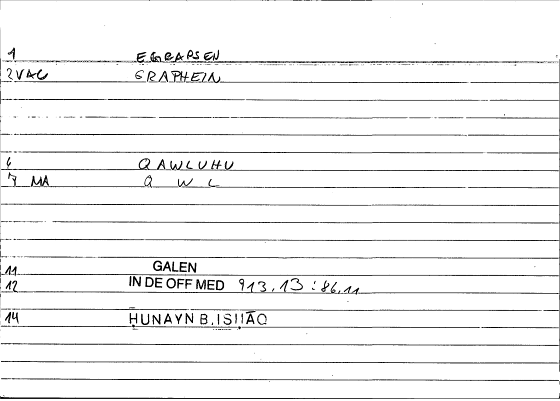 1 EGRAPSEN
2 VAG GRAPHEIN
6 QAWLUHU
7 MA Q W L
11 GALEN
12 IN DE OFF MED 913.13:86.11
14 ḤUNAYN B. ISḤĀQ